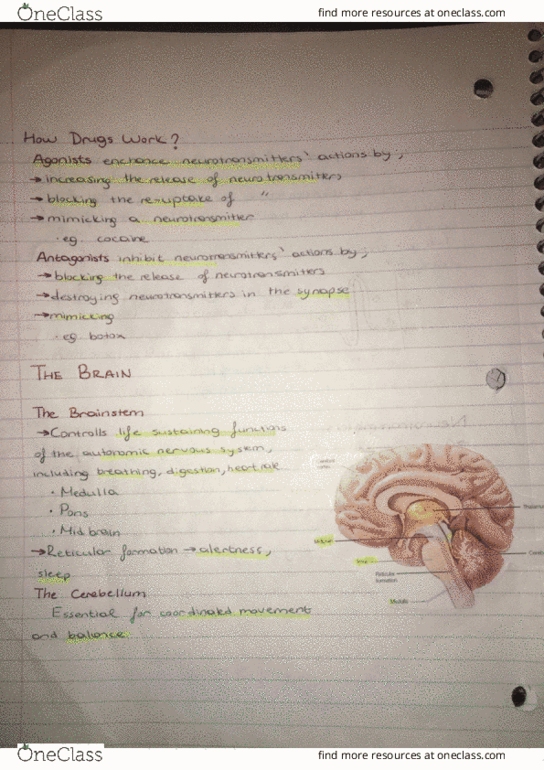 OneClass
find more resources at oneclass.com
How Drugs Work?
Agonists enchance neurotransmitters' actions by;
→ increasing the release of neurotransmitters
→ blocking the reuptake of "
→ mimicking a neurotransmitter
· eg. cocaine
Antagonists inhibit neurotransmitters' actions by;
→ blocking the release of neurotransmitters
→ destroying neurotransmitters in the synapse
→ mimicking
· eg. botox
THE BRAIN
The Brainstem
→ Controlls life sustaining functions
of the autonomic nervous system,
including breathing, digestion, heart rate
· Medulla
· Pons
· Midbrain
→ Reticular formation → alertness,
sleep
The Cerebellum
Essential for coordinated movement
and balance
Thalamus
Midbrain
Pons
Reticular
formation
Medulla
OneClass
find more resources at oneclass.com